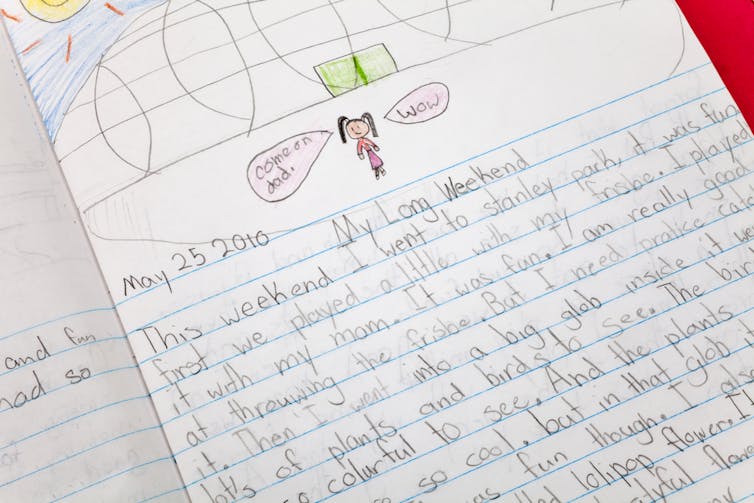 come on
dad.
wow
May 25 2010
My Long Weekend
This weekend I went to stanley park, it was fun
first we played a little with my frisbe. I played
it with my mom. It was fun. I am really good
at throuwing the frisbe. But I need pratice
it. Then I went into a big glob inside it
lots of plants and birds to see. The
so colurful to see. And the plants
so cool. but in that glob
was fun though. I
lolipop flower.
and fun
had so